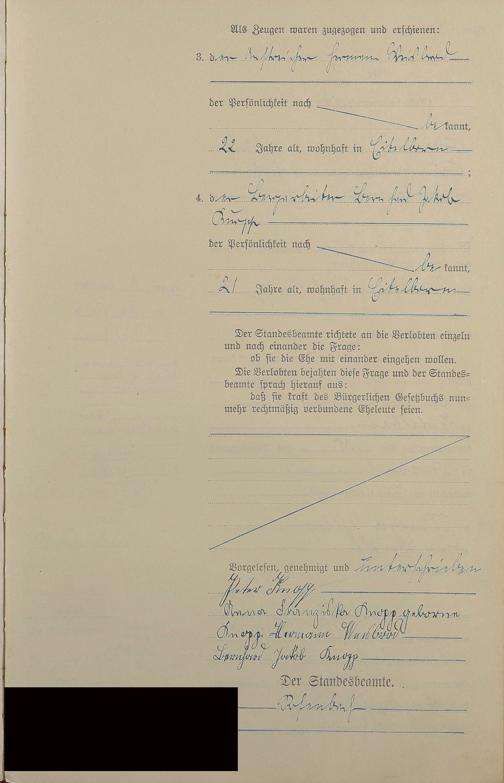 Als Zeugen waren zugezogen und erschienen:
3. der Hermann Weisbrod
der Persönlichkeit nach
bekannt,
22 Jahre alt, wohnhaft in Eitelborn
;
4. der Bergarbeiter Bernhard Jakob
Knopp
der Persönlichkeit nach
bekannt,
21 Jahre alt, wohnhaft in Eitelborn
Der Standesbeamte richtete an die Verlobten einzeln
und nach einander die Frage:
ob sie die Ehe mit einander eingehen wollen.
Die Verlobten bejahten diese Frage und der Standes-
beamte sprach hierauf aus:
daß sie kraft des Bürgerlichen Gesetzbuchs nun-
mehr rechtmäßig verbundene Eheleute seien.
Vorgelesen, genehmigt und unterschrieben
Peter Knopp
Anna Franziska Knopp geborne
Knopp. Hermann Weisbrod
Bernhard Jakob Knopp
Der Standesbeamte.